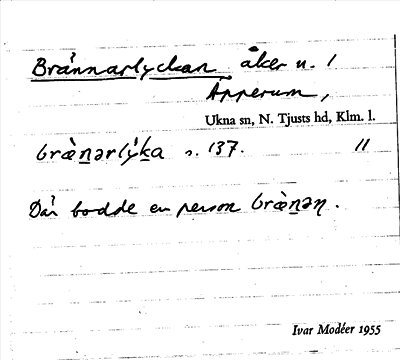 Brännarlyckan åker n. 1
Äpperum,
Ukna sn, N. Tjusts hd, Klm. l.
bræ̀n̲ərlýk̲a s. 137. 11
Där bodde en person bræ̀n̲ən̥.
Ivar Modéer 1955